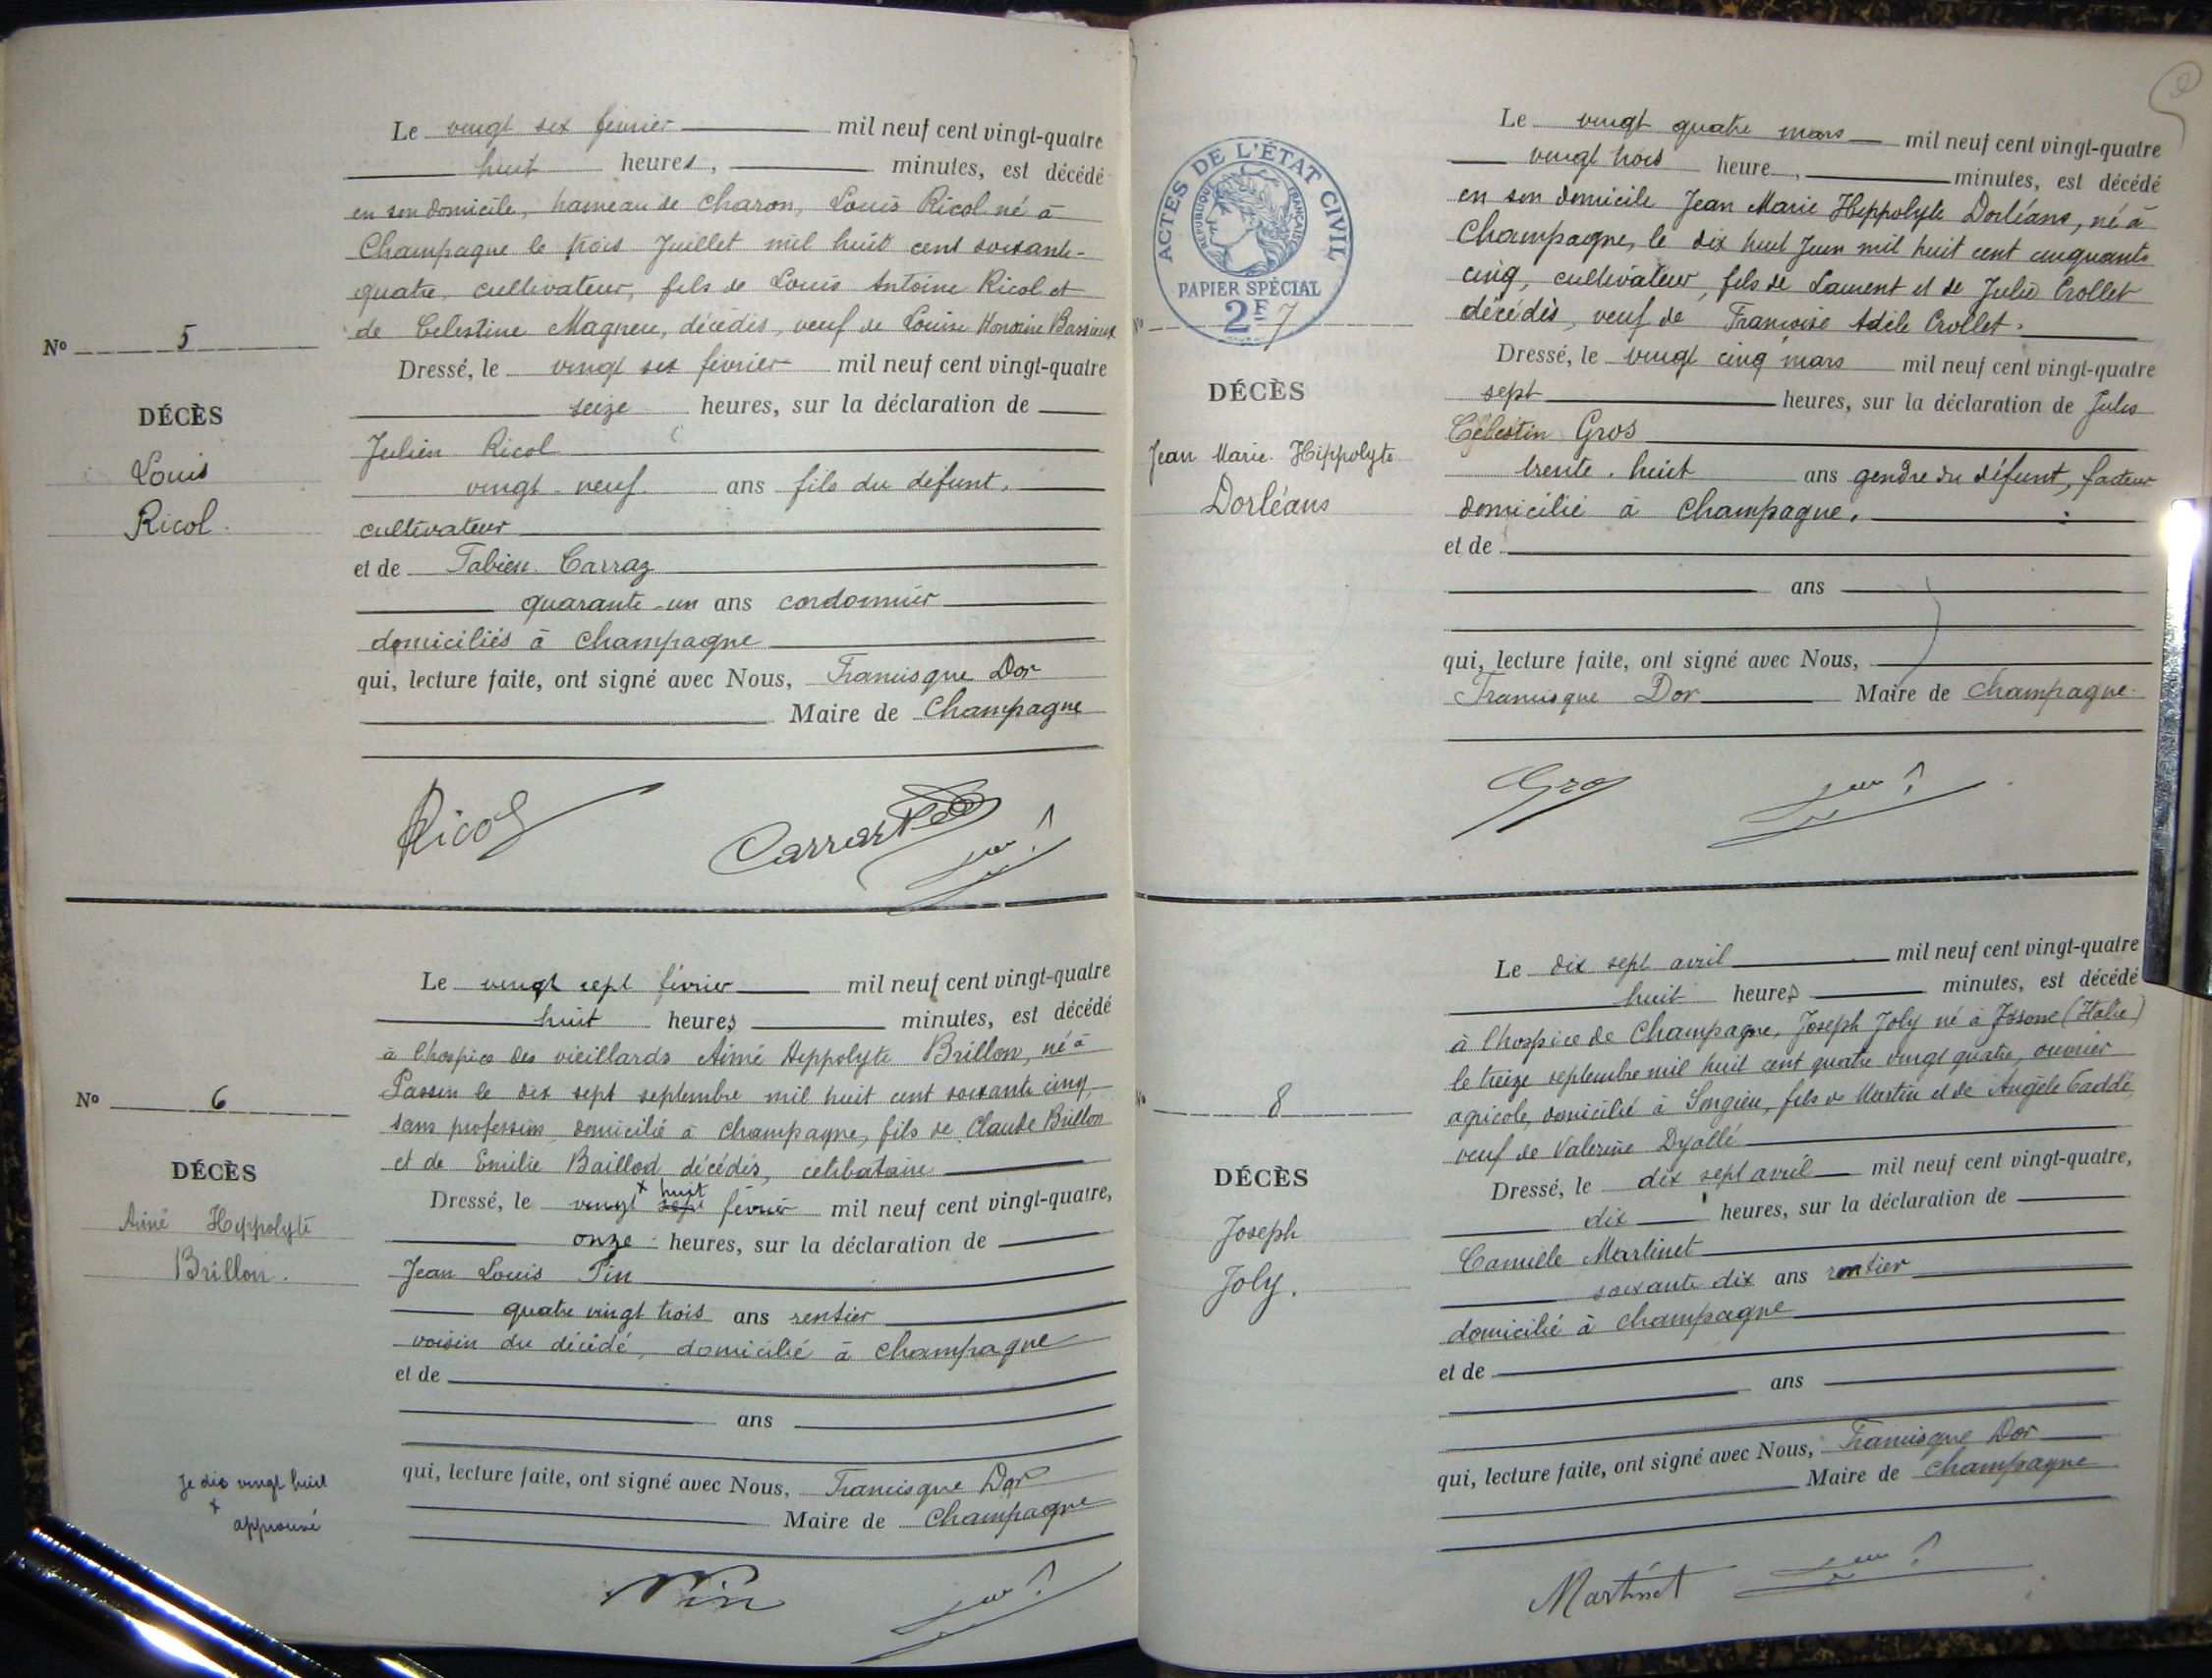 Le vingt six février mil neuf cent vingt-quatre
huit heures, minutes, est décédé
en son domicile, hameau de Charon, Louis Ricol né à
Champagne le trois Juillet mil huit cent soixante-
quatre, cultivateur, fils de Louis Antoine Ricol et
de Celestine Magneu, décédés, veuf de Louise
No 5
Dressé, le vingt six février mil neuf cent vingt-quatre
DÉCÈS
Louis
Ricol.
seize heures, sur la déclaration de
Julien Ricol
vingt-neuf ans fils du défunt,
cultivateur
et de Fabien Carraz
quarante-un ans cordonnier
domiciliés à Champagne
qui, lecture faite, ont signé avec Nous, Francisque Dor
Maire de Champagne
Ricol
Carraz
Le vingt sept février mil neuf cent vingt-quatre
huit heures minutes, est décédé
à l'hospice des vieillards Aimé Hippolyte Brillon, né à
Passin le dix sept septembre mil huit cent soixante cinq,
sans profession, domicilié à Champagne, fils de Claude Brillon
et de Emilie Baillod décédés, célibataire
No 6
DÉCÈS
Aimé Hyppolyte
Brillon.
x huit
Dressé, le vingt sept février mil neuf cent vingt-quatre,
onze heures, sur la déclaration de
Jean Louis Pin
quatre vingt trois ans rentier
voisin du décédé, domicilié à Champagne
et de
ans
Je dis vingt huit
x
approuvé
qui, lecture faite, ont signé avec Nous, Francisque Dor
Maire de Champagne
Pin
ACTES DE L'ÉTAT CIVIL
RÉPUBLIQUE FRANÇAISE
PAPIER SPÉCIAL
2F
No 7
DÉCÈS
Jean Marie Hippolyte
Dorléans
Le vingt quatre mars mil neuf cent vingt-quatre
vingt trois heure, minutes, est décédé
en son domicile Jean Marie Hippolyte Dorléans, né à
Champagne, le dix huit Juin mil huit cent cinquante
cinq, cultivateur, fils de Laurent et de Julie Crollet
décédés, veuf de Françoise Adèle Crollet.
Dressé, le vingt cinq mars mil neuf cent vingt-quatre
sept heures, sur la déclaration de Jules
Célestin Gros
trente-huit ans gendre du défunt, facteur
domicilié à Champagne.
et de
ans
qui, lecture faite, ont signé avec Nous,
Francisque Dor Maire de Champagne
Gros
Le dix sept avril mil neuf cent vingt-quatre
huit heures minutes, est décédé
à l'hospice de Champagne, Joseph Joly né à (Italie)
le treize septembre mil huit cent quatre vingt quatre, ouvrier
agricole, domicilié à Songieu, fils de Martin et de Angèle Gaddé,
veuf de Valerine Dyallé
No 8
DÉCÈS
Joseph
Joly.
Dressé, le dix sept avril mil neuf cent vingt-quatre,
dix heures, sur la déclaration de
Camille Martinet
soixante dix ans rentier
domicilié à Champagne
et de
ans
qui, lecture faite, ont signé avec Nous, Francisque Dor
Maire de Champagne
Martinet